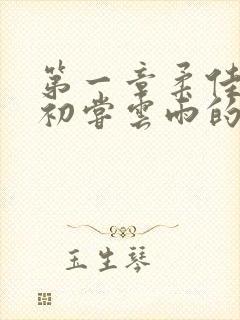 第一章柔佳
初尝云雨的
玉生琴